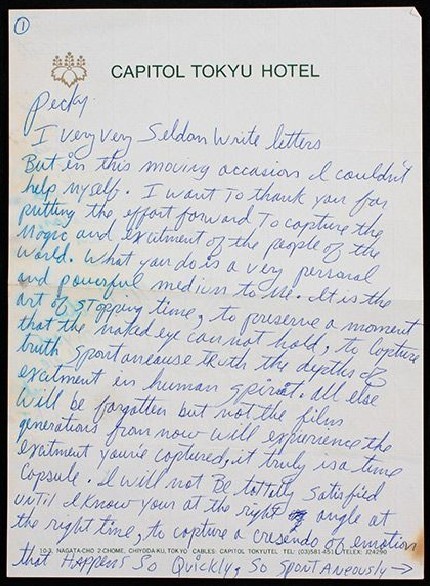 1
CAPITOL TOKYU HOTEL
Pecky.
I very very Seldon write letters
But in this moving occasion I couldn't
help myself. I want to thank you for
putting the effort forward To capture the
Magic and excitment of the people of the
world. What you do is a very personal
and powerful medium to me. It is the
art of stopping time, to preserve a moment
that the naked eye can not hold, to capture
truth spontaneause truth the depths of
excitment in human spirit. All else
will be forgotten but not the film
generations from now will experience the
excitment youve captured, it truly is a time
Capsule. I will not Be totally satisfied
until I know your at the right angle at
the right time, to capture a cresendo of emotion
10-3, NAGATA-CHO 2-CHOME, CHIYODA-KU, TOKYO CABLES: CAPITOL TOKYUTEL TEL: (03)581-4511 TELEX: J24290
that HAPPENS SO Quickly, So SPONTANEOUSLY →